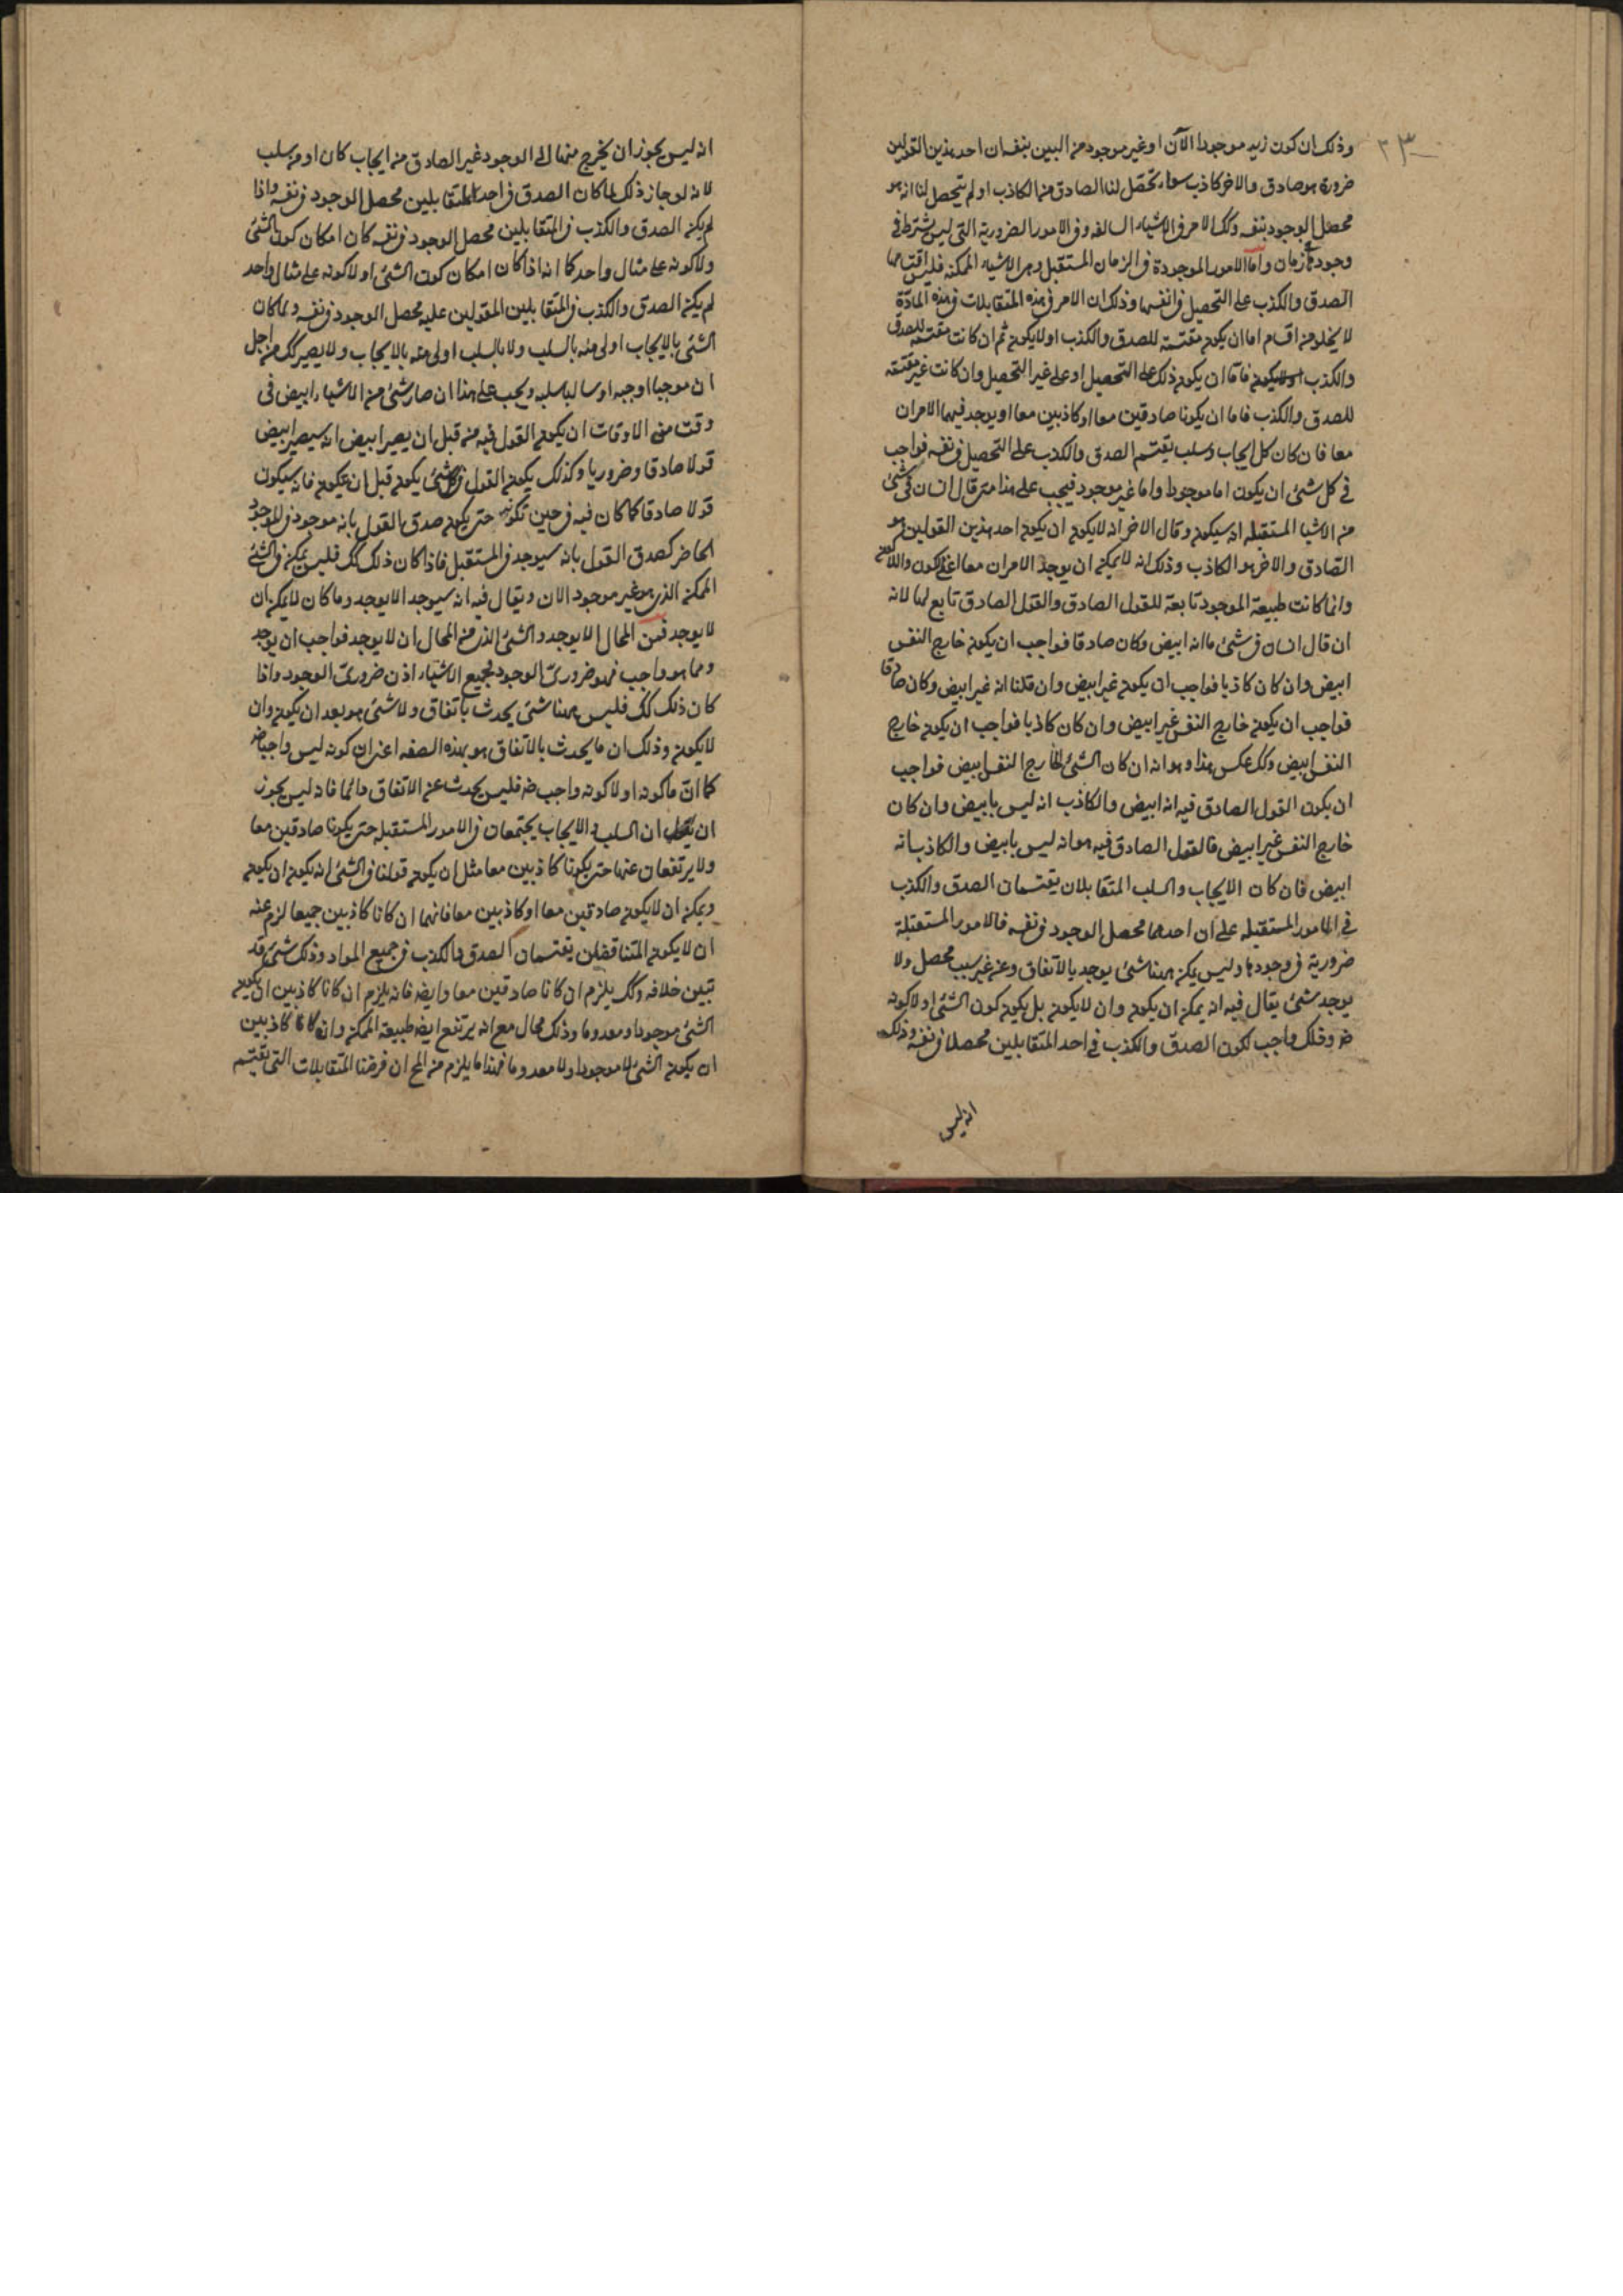 ٢٣
وذلك ان كون زيد موجودا الآن او غير موجود من البين بنفسه ان احد هذين القولين
ضرورة هو صادق والاخر كاذب سواء تحصّل لنا الصادق منهما الكاذب او لم يتحصل لنا انه هو
محصل الوجود بنفسه وكك الامر فى الاشياء السالفه وفى الامور الضرورية التى ليس يشترط فى
وجودها زمان واما الامور الموجودة فى الزمان المستقبل وهى الاشياء الممكنه فليس اقتسامها
الصدق والكذب على التحصيل فى انفسها وذلك ان الامر فى هذه المتقابلات فى هذه المادّة
لا يخلو من اقسام اما ان يكون مقتسمة للصدق والكذب او لا يكون ثم ان كانت مقتسمة للصدق
والكذب فامّا ان يكون ذلك على التحصيل او على غير التحصيل وان كانت غير مقتسمه
للصدق والكذب فاما ان يكونا صادقين معا او كاذبين معا او يوجد فيهما الامران
معا فان كان كل ايجاب وسلب يقتسم الصدق والكذب على التحصيل فى نفسه فواجب
فى كل شئ ان يكون اما موجودا واما غير موجود فيجب على هذا متى قال انسان فى شئ
من الاشيا المستقبله انه سيكون وقال الاخر انه لا يكون ان يكون احد هذين القولين هو
الصّادق والاخر هو الكاذب وذلك انه لا يمكن ان يوجد الامران معا اعنى الكون واللاكون
وانما كانت طبيعة الموجود تابعة للقول الصادق والقول الصادق تابع لها لانه
ان قال انسان فى شئ ما انه ابيض وكان صادقا فواجب ان يكون خارج النفس
ابيض وان كان كاذبا فواجب ان يكون غير ابيض وان قلنا انه غير ابيض وكان صادقا
فواجب ان يكون خارج النفس غير ابيض وان كان كاذبا فواجب ان يكون خارج
النفس ابيض وكك عكس هذا وهو انه ان كان الشئ الخارج النفس ابيض فواجب
ان يكون القول الصادق فيه انه ابيض والكاذب انه ليس بابيض وان كان
خارج النفس غير ابيض فالقول الصادق فيه هو انه ليس بابيض والكاذب انه
ابيض فان كان الايجاب والسلب المتقابلان يقتسمان الصدق والكذب
فى الامور المستقبله على ان احدهما محصل الوجود فى نفسه فالامور المستقبلة
ضرورية فى وجودها وليس يكن ههنا شئ يوجد بالاتفاق وعن غير سبب محصل ولا
يوجد شئ يقال فيه انه يمكن ان يكون وان لا يكون بل يكون كون الشئ او لا كونه
ضرورة وذلك واجب لكون الصدق والكذب فى احد المتقابلين محصلا فى نفسه وذلك
انه ليس
انه ليس يجوز ان يخرج منهما الى الوجود غير الصادق من ايجاب كان او من سلب
لانه لو جاز ذلك لما كان الصدق فى احد المتقابلين محصل الوجود فى نفسه واذا
لم يكن الصدق والكذب فى المتقابلين محصل الوجود فى نفسه كان امكان كون الشئ
ولا كونه على مثال واحد كما انه اذا كان امكان كون الشئ او لا كونه على مثال واحد
لم يكن الصدق والكذب فى المتقابلين المقولين عليه محصل الوجود فى نفسه ولما كان
الشئ بالايجاب اولى منه بالسلب ولا بالسلب اولى منه بالايجاب ولا يصير كك من اجل
ان موجبا اوجبه او سالبا سلبه ويجب على هذا ان صار شئ من الاشياء ابيض فى
وقت من الاوقات ان يكون القول فيه من قبل ان يصير ابيض انه سيصير ابيض
قولا صادقا وضروريا وكذلك يكون القول فى كل شئ يكون قبل ان يكون فانه سيكون
قولا صادقا كما كان فيه فى حين تكونه حتى يكون صدق القول بانه موجود فى الوجود
الحاضر كصدق القول بانه سيوجد فى المستقبل فاذا كان ذلك كك فليس يمكن فى الشئ
الممكن الذى هو غير موجود الان ويقال فيه انه سيوجد الا يوجد وما كان لا يمكن ان
لا يوجد فمن المحال الا يوجد والشئ الذى من المحال ان لا يوجد فواجب ان يوجد
ومما هو واجب فهو ضرورىّ الوجود فجميع الاشياء اذن ضرورىّ الوجود واذا
كان ذلك كك فليس ههنا شئ يحدث باتفاق ولا شئ هو بعد ان يكون وان
لا يكون وذلك ان ما يحدث بالاتفاق هو بهذه الصفه اعنى ان كونه ليس واجبا
كما انّ ما كونه او لا كونه واجب فليس يحدث عن الاتفاق دائما فانه ليس يجوز
ان ان السلب والايجاب يجتمعان فى الامور المستقبله حتى يكونا صادقين معا
ولا يرتفعان عنها حتى يكونا كاذبين معا مثل ان يكون قولنا فى الشئ انه يكون ان يكون
ويمكن ان لا يكون صادقين معا او كاذبين معا فانهما ان كانا كاذبين جميعا لزم عنه
ان لا يكون المتناقضان يقتسمان الصدق والكذب فى جميع المواد وذلك شئ قد
تبين خلافه وكك يلزم ان كانا صادقين معا وايضا فانه يلزم ان كانا كاذبين ان يكون
الشئ موجودا ومعدوما وذلك محال مع انه يرتفع ايضا طبيعة الممكن وان كانا كاذبين
ان يكون الشئ لا موجودا ولا معدوما فهذا ما يلزم من المح ان فرضنا المتقابلات التى تقتسم